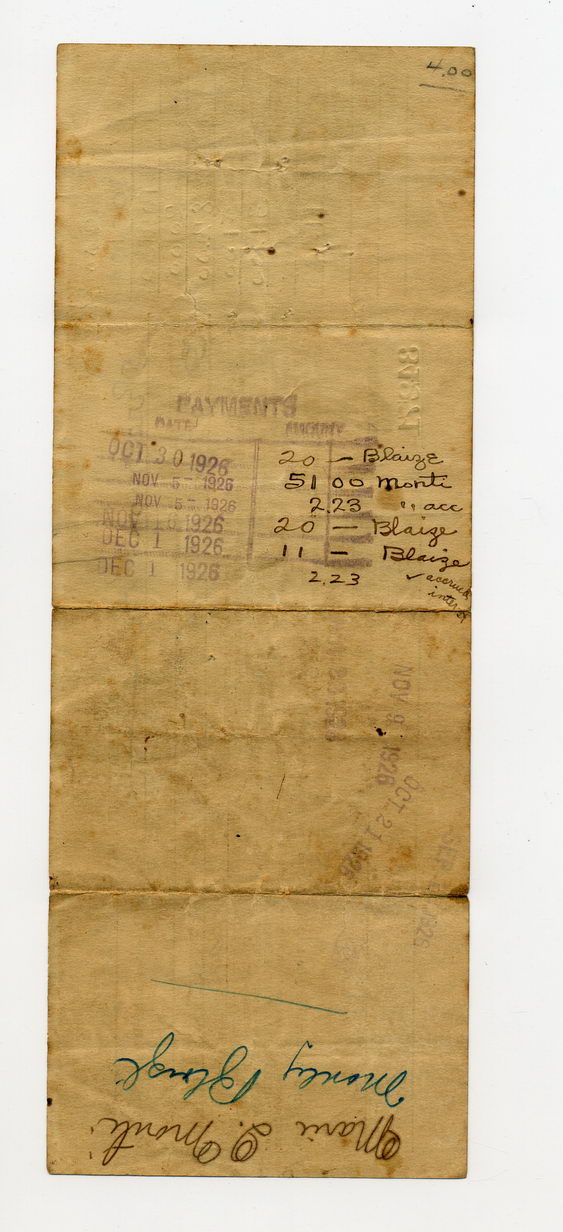 4.00
84371
PAYMENTS
DATE AMOUNT
OCT 30 1926 20 — Blaize
NOV 5 - 1926 51 00 Monti
NOV 5 - 1926 2.23 " acc
NOV 16 1926 20 — Blaize
DEC 1 1926 11 — Blaize
DEC 1 1926 2.23 ✓ accrued
inter
NOV 9 1926
OCT 21 1926
SEP 1926
Manly Blaize
Marie L. Monti